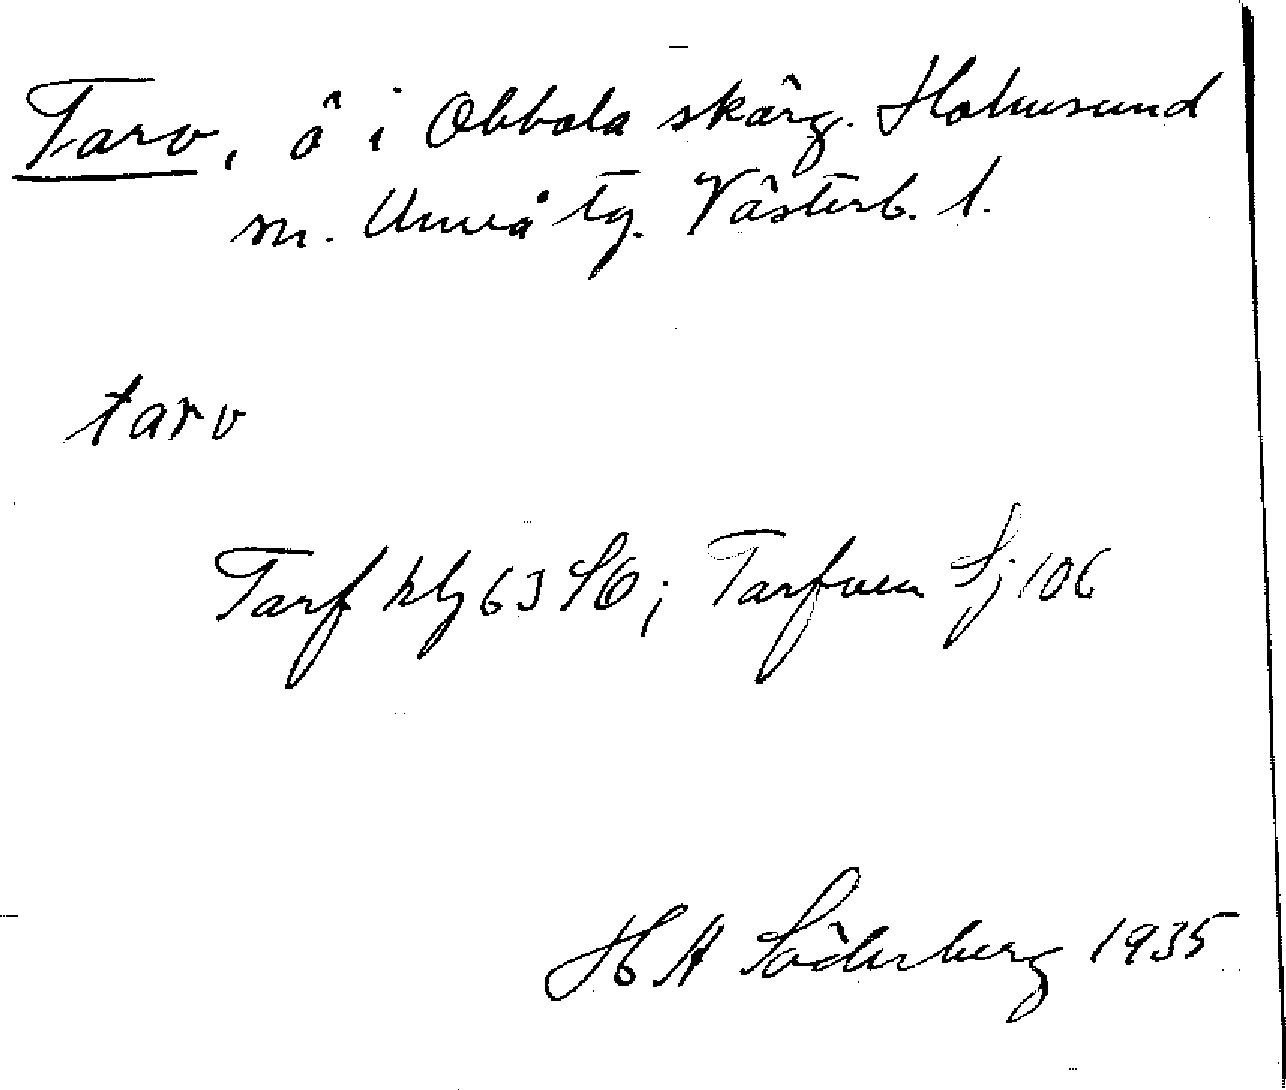 Tarv, ö i Obbola skärg. Holmsund
sn. Umeå tg. Västerb. l.
tarv
Tarf klg 63 SO; Tarfven Sj 106
H A Söderberg 1935